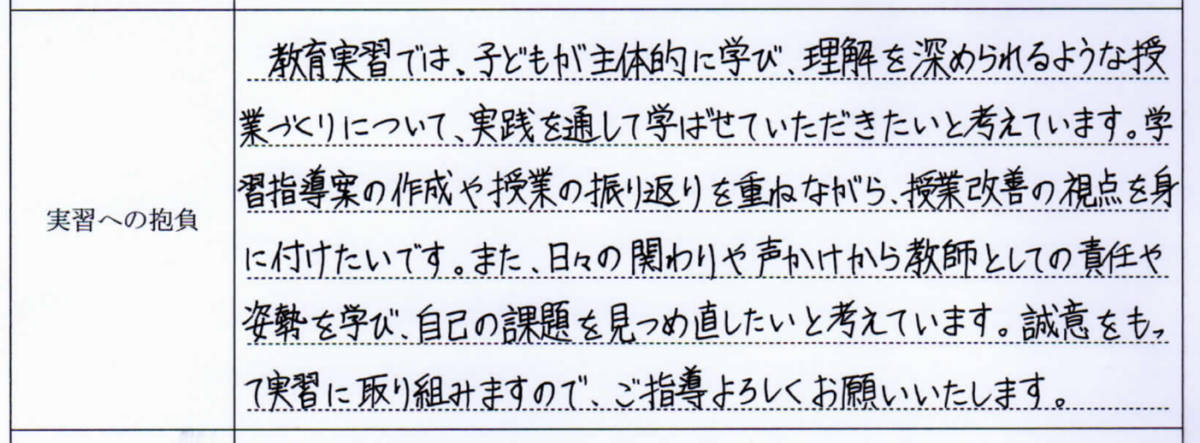 実習への抱負
教育実習では、子どもが主体的に学び、理解を深められるような授
業づくりについて、実践を通して学ばせていただきたいと考えています。学
習指導案の作成や授業の振り返りを重ねながら、授業改善の視点を身
に付けたいです。また、日々の関わりや声かけから教師としての責任や
姿勢を学び、自己の課題を見つめ直したいと考えています。誠意をもっ
て実習に取り組みますので、ご指導よろしくお願いいたします。